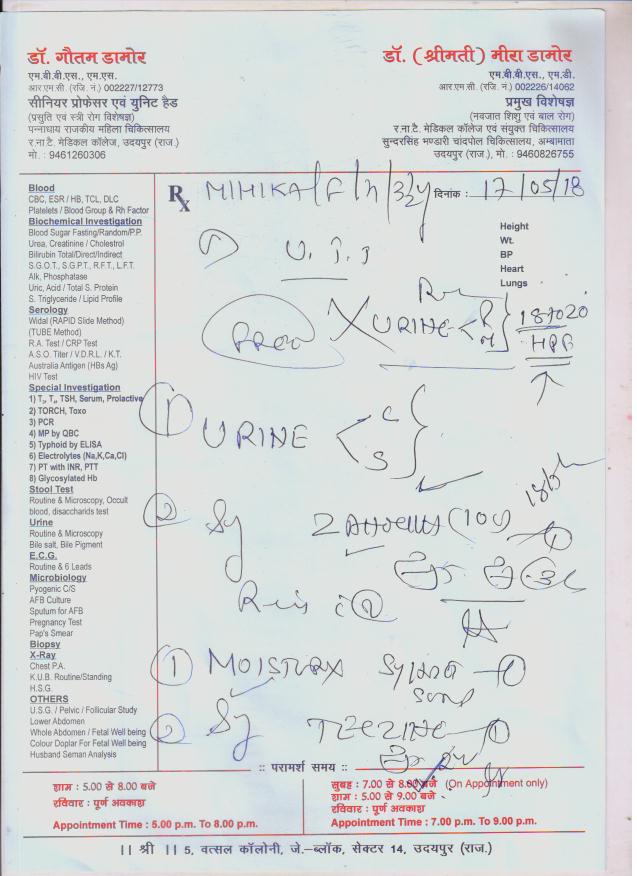 डॉ. गौतम डामोर
एम.बी.बी.एस., एम.एस.
आर.एम.सी. (रजि. नं.) 002227/12773
सीनियर प्रोफेसर एवं यूनिट हैड
(प्रसुति एवं स्त्री रोग विशेषज्ञ)
पन्नाधाय राजकीय महिला चिकित्सालय
र.ना.टै. मेडिकल कॉलेज, उदयपुर (राज.)
मो. : 9461260306
डॉ. (श्रीमती) मीरा डामोर
एम.बी.बी.एस., एम.डी.
आर.एम.सी. (रजि. नं.) 002226/14062
प्रमुख विशेषज्ञ
(नवजात शिशु एवं बाल रोग)
र.ना.टै. मेडिकल कॉलेज एवं संयुक्त चिकित्सालय
सुन्दरसिंह भण्डारी चांदपोल चिकित्सालय, अम्बामाता
उदयपुर (राज.), मो. : 9460826755
Blood
CBC, ESR / HB, TCL, DLC
Platelets / Blood Group & Rh Factor
Biochemical Investigation
Blood Sugar Fasting/Random/P.P.
Urea, Creatinine / Cholestrol
Bilirubin Total/Direct/Indirect
S.G.O.T., S.G.P.T., R.F.T., L.F.T.
Alk, Phosphatase
Uric, Acid / Total S. Protein
S. Triglyceride / Lipid Profile
Serology
Widal (RAPID Slide Method)
(TUBE Method)
R.A. Test / CRP Test
A.S.O. Titer / V.D.R.L. / K.T.
Australia Antigen (HBs Ag)
HIV Test
Special Investigation
1) T₃, T₄, TSH, Serum, Prolactive
2) TORCH, Toxo
3) PCR
4) MP by QBC
5) Typhoid by ELISA
6) Electrolytes (Na,K,Ca,Cl)
7) PT with INR, PTT
8) Glycosylated Hb
Stool Test
Routine & Microscopy, Occult
blood, disaccharids test
Urine
Routine & Microscopy
Bile salt, Bile Pigment
E.C.G.
Routine & 6 Leads
Microbiology
Pyogenic C/S
AFB Culture
Sputum for AFB
Pregnancy Test
Pap's Smear
Biopsy
X-Ray
Chest P.A.
K.U.B. Routine/Standing
H.S.G.
OTHERS
U.S.G. / Pelvic / Follicular Study
Lower Abdomen
Whole Abdomen / Fetal Well being
Colour Doplar For Fetal Well being
Husband Seman Analysis
Rx MIHIKA/F/ दिनांक : 17/05/18
Height
Wt.
BP
Heart
Lungs
U.T.I
URINE
HPF
1 URINE < C S
2 Sy
1 MOISTUREX
2 Sy
:: परामर्श समय ::
शाम : 5.00 से 8.00 बजे
रविवार : पूर्ण अवकाश
Appointment Time : 5.00 p.m. To 8.00 p.m.
सुबह : 7.00 से 8.00 बजे (On Appointment only)
शाम : 5.00 से 9.00 बजे
रविवार : पूर्ण अवकाश
Appointment Time : 7.00 p.m. To 9.00 p.m.
|| श्री || 5, वत्सल कॉलोनी, जे.-ब्लॉक, सेक्टर 14, उदयपुर (राज.)